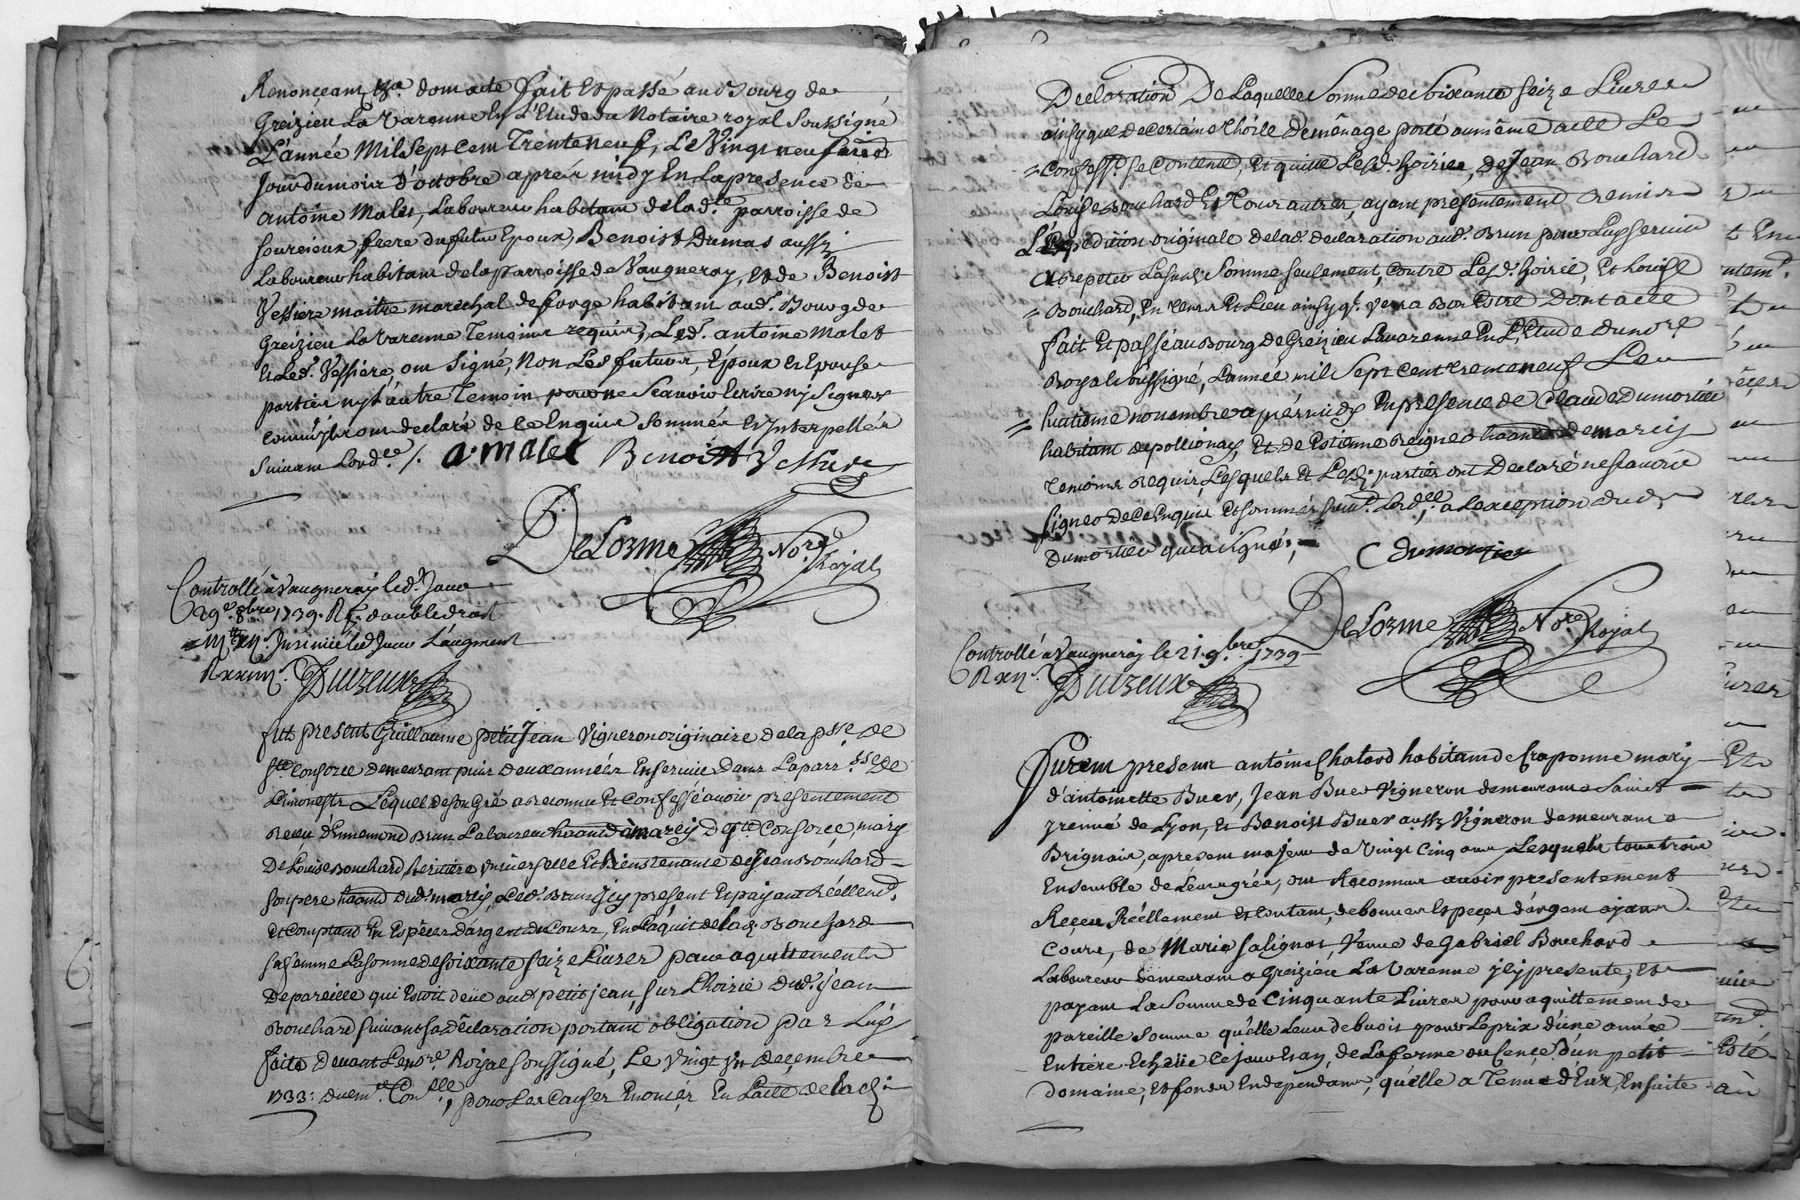 Renonceant &ra. dont acte fait Et passé au Bourg de
Greizieu La Varenne En L'Etude du Notaire royal Soussigné
L'année Mil Sept cent Trente neuf, Le Vingt neufvieme
Jour du mois d'octobre après midy En La presence de
antoine Malet, Laboureur habitant de lad.te parroisse de
Sourcieux frere du futur Epoux, Benoist Dumas aussy
Laboureur habitant de la parroisse de Vaugneray, Et de Benoist
Vessiere maitre marechal de forge habitant aud. Bourg de
Greizieu La Varenne Temoins requis, Led. antoine Malet
Et Led. Vessiere ont Signé, Non Les futurs, Epoux Et Epouse
parties ny l'autre Temoin pour ne Scavoir Ecrire ny Signer
comm'ils ont declaré de ce Enquis Sommés Et Interpellés
Suivant Lord.ce /. a. malet Benoist Vessiere
DeLorme No.re Royal
Controllé à Vaugneray led. Jour
29.e 8bre 1739. R. double droit
Insinué led Jour
Duizeux
fut present Guillaume petit Jean Vigneron originaire de la p.sse de
S.te Consorce demeurant puis deux années En Service Dans La parr.sse De
Limonest, Lequel de son Gré a reconnu Et confessé avoir presentement
Receu d'Ennemond Brun Laboureur habitant à marcy De S.te Consorce, mary
De Louise Bouchard heritiere universelle Et Bienstenante de Jean Bouchard
son pere habitant dud. marcy, Led. Brun Icy present Et payant Réellem.t
Et comptant En Espèces d'argent du Cours, En L'aquit de lad. Bouchard
sa femme La somme de soixante seize Livres pour aquittement
De pareille qui Estoit deüe aud. petit jean, sur L'hoirie dud. jean
Bouchard suivant sa déclaration portant obligation par Luy
faite Devant Le no.re Royal soussigné, Le Vingt un decembre
1733: duem.t Con.llé, pour Les Causes Enoncés En L'acte de lad.
Declaration De Laquelle somme de soixante seize Livres
ainsy que de certaine Thoille de menage porté au même acte Le
Confess.t se contente, Et quitte Lesd. hoiries, de Jean Bouchard
Louise Bouchard Et Tous autres, ayant presentement Remis
L'Expedition originale de lad. declaration aud. Brun pour Luy servir
a repeter La susd. somme seulement, contre Lesd. hoirie, Et Louise
Bouchard, En Tems Et Lieu ainsy q.l verra bon Estre Dont acte
fait Et passé au Bourg de Greizieu Lavarenne En L'Etude du no.re
Royal soussigné, L'année mil Sept Cent trente neuf Le
huitième novembre après midy En presence de Claude Dumortier
habitant de pollionay, Et de Estienne habitant de marcy
Temoins Requis, Lesquels Et Lesd. parties ont Declaré ne scavoir
signer de ce Enquis Et sommés suiv.t Lord.ce, a Lexception dud.
Dumortier qui a signé;
C dumortier
DeLorme No.re Royal
Controllé à Vaugneray le 21. 9.bre 1739
Duizeux
Furent presents antoine Chatard habitant de Craponne mary
d'antoinette Buer, Jean Buer Vigneron demeurant a Saint
yrenné de Lyon, Et Benoist Buer aussy Vigneron demeurant a
Brignais, apresent majeur de Vingt Cinq ans, Lesquels tous trois
Ensemble de Leurs grés, ont Reconnus avoir presentement
Reçeu Réellement Et Contant, de bonnes Especes d'argent ayant
Cours, de Marie Salignat, Veuve de Gabriel Bouchard
Laboureur demeurant a Greizieu La Varenne jcy presente, Et
payant La Somme de Cinquante Livres pour aquittement de
pareille Somme qu'elle Leur debvoit pour Le prix d'une année
Entiere Echeüe ce jourd'huy, de La ferme ou Cence d'un petit
domaine, Et fonds En dependants, qu'elle a Tenu d'Eux, Ensuite